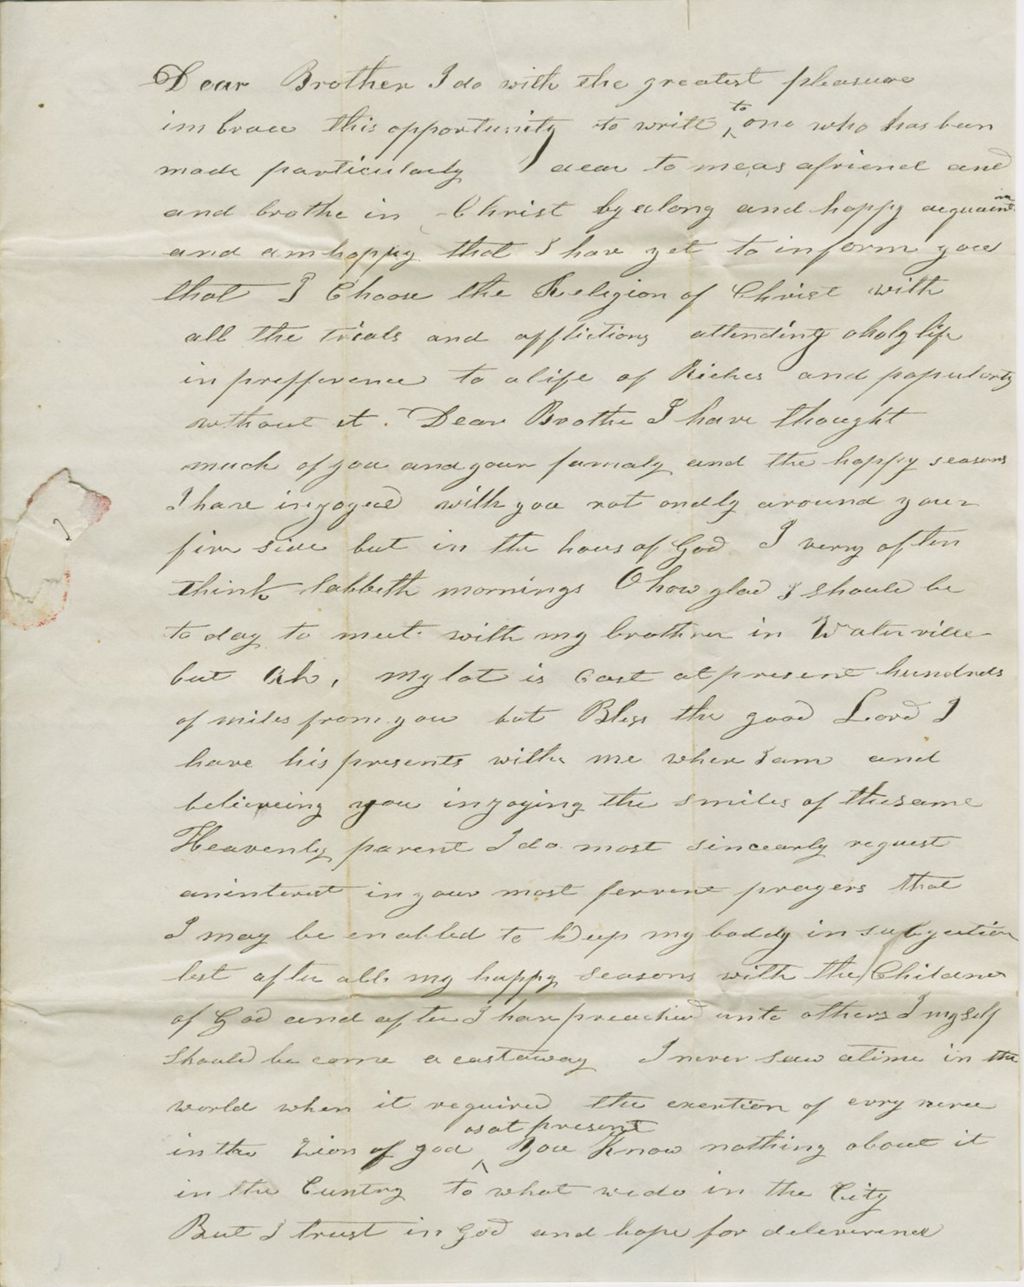 Dear Brother I do with the greatest pleasure
imbrace this opportunity to write to one who has been
made particularly dear to me as a friend and
and brothe in Christ by a long and happy acquain
and am happy that I have yet to inform you
that I Choose the Religion of Christ with
all the trials and afflictions attending a holy life
in prefference to a life of Riches and popularity
without it. Dear Brothe I have thought
much of you and your famaly and the happy seasons
I have injoyed with you not ondly around your
fire side but in the hous of God I very often
think Sabbeth mornings O how glad I should be
to day to meet with my brothren in Waterville
but Ah, my lot is Cast at present hundreds
of miles from you but Bless the good Lord I
have his presents with me where I am and
believeing you injoying the smiles of the same
Heavenly parent I do most sincearly request
an interest in your most fervent prayers that
I may be enabled to keep my boddy in subjection
lest after all my happy seasons with the Children
of God and after I have preached unto others I myself
should be come a castaway I never saw a time in the
world when it required the exertion of evry nerve
in the Zion of god as at present You Know nothing about it
in the Cuntry to what we do in the City
But I trust in God and hope for deliverence